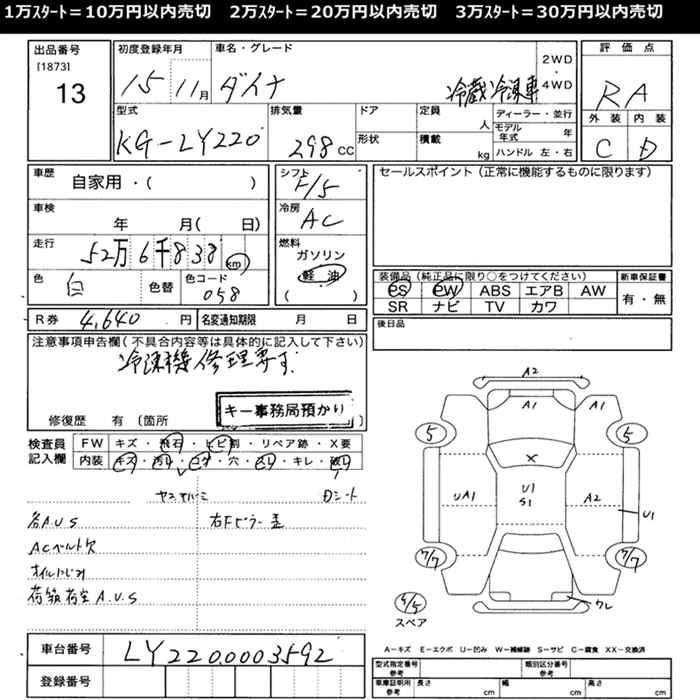 1万ｽﾀｰﾄ＝10万円以内売切　2万ｽﾀｰﾄ＝20万円以内売切　3万ｽﾀｰﾄ＝30万円以内売切
出品番号 初度登録年月 車名・グレード 2WD 評価点
[1873]
13 15 11月 ダイナ 冷蔵冷凍車 4WD RA
型式 排気量 ドア 定員 人 ディーラー・並行 外装 内装
KG-LY220 298cc 形状 積載 kg モデル年式 年 C D
ハンドル 左・右
車歴 自家用・( ) シフト F/5 セールスポイント(正常に機能するものに限ります)
車検 年 月( 日) 冷房 AC
走行 52万6千838km 燃料 ガソリン
軽油
( )
色 白 色替 色コード 058
装備品(純正品に限り○をつけてください) 新車保証書
PS PW ABS エアB AW 有・無
SR ナビ TV カワ
R券 4,640円 名変通知期限 月 日 後日品
注意事項申告欄(不具合内容等は具体的に記入して下さい)
冷凍機修理要す
キー事務局預かり
修復歴 有〔箇所
検査員記入欄 FW キズ・飛石・ヒビ割・リペア跡・X要
内装 キズ・汚れ・コゲ・穴・スレ・キレ・破れ
Dシート
各A.U.S 右Fピラー歪
ACベルト欠
オイルにじみ
荷箱荷室A.U.S
車台番号 LY220.0003592
登録番号
A2
A1 A1
5 5
X
UA1 U1 S1 A2 U1
7/7 7/7
5/5 ワレ
スペア
A－キズ E－エクボ U－凹み W－補修跡 S－サビ C－腐食 XX－交換済
型式指定番号 参考 類別区分番号 参考
車庫証明用 参考 長さ cm 幅 cm 高さ cm